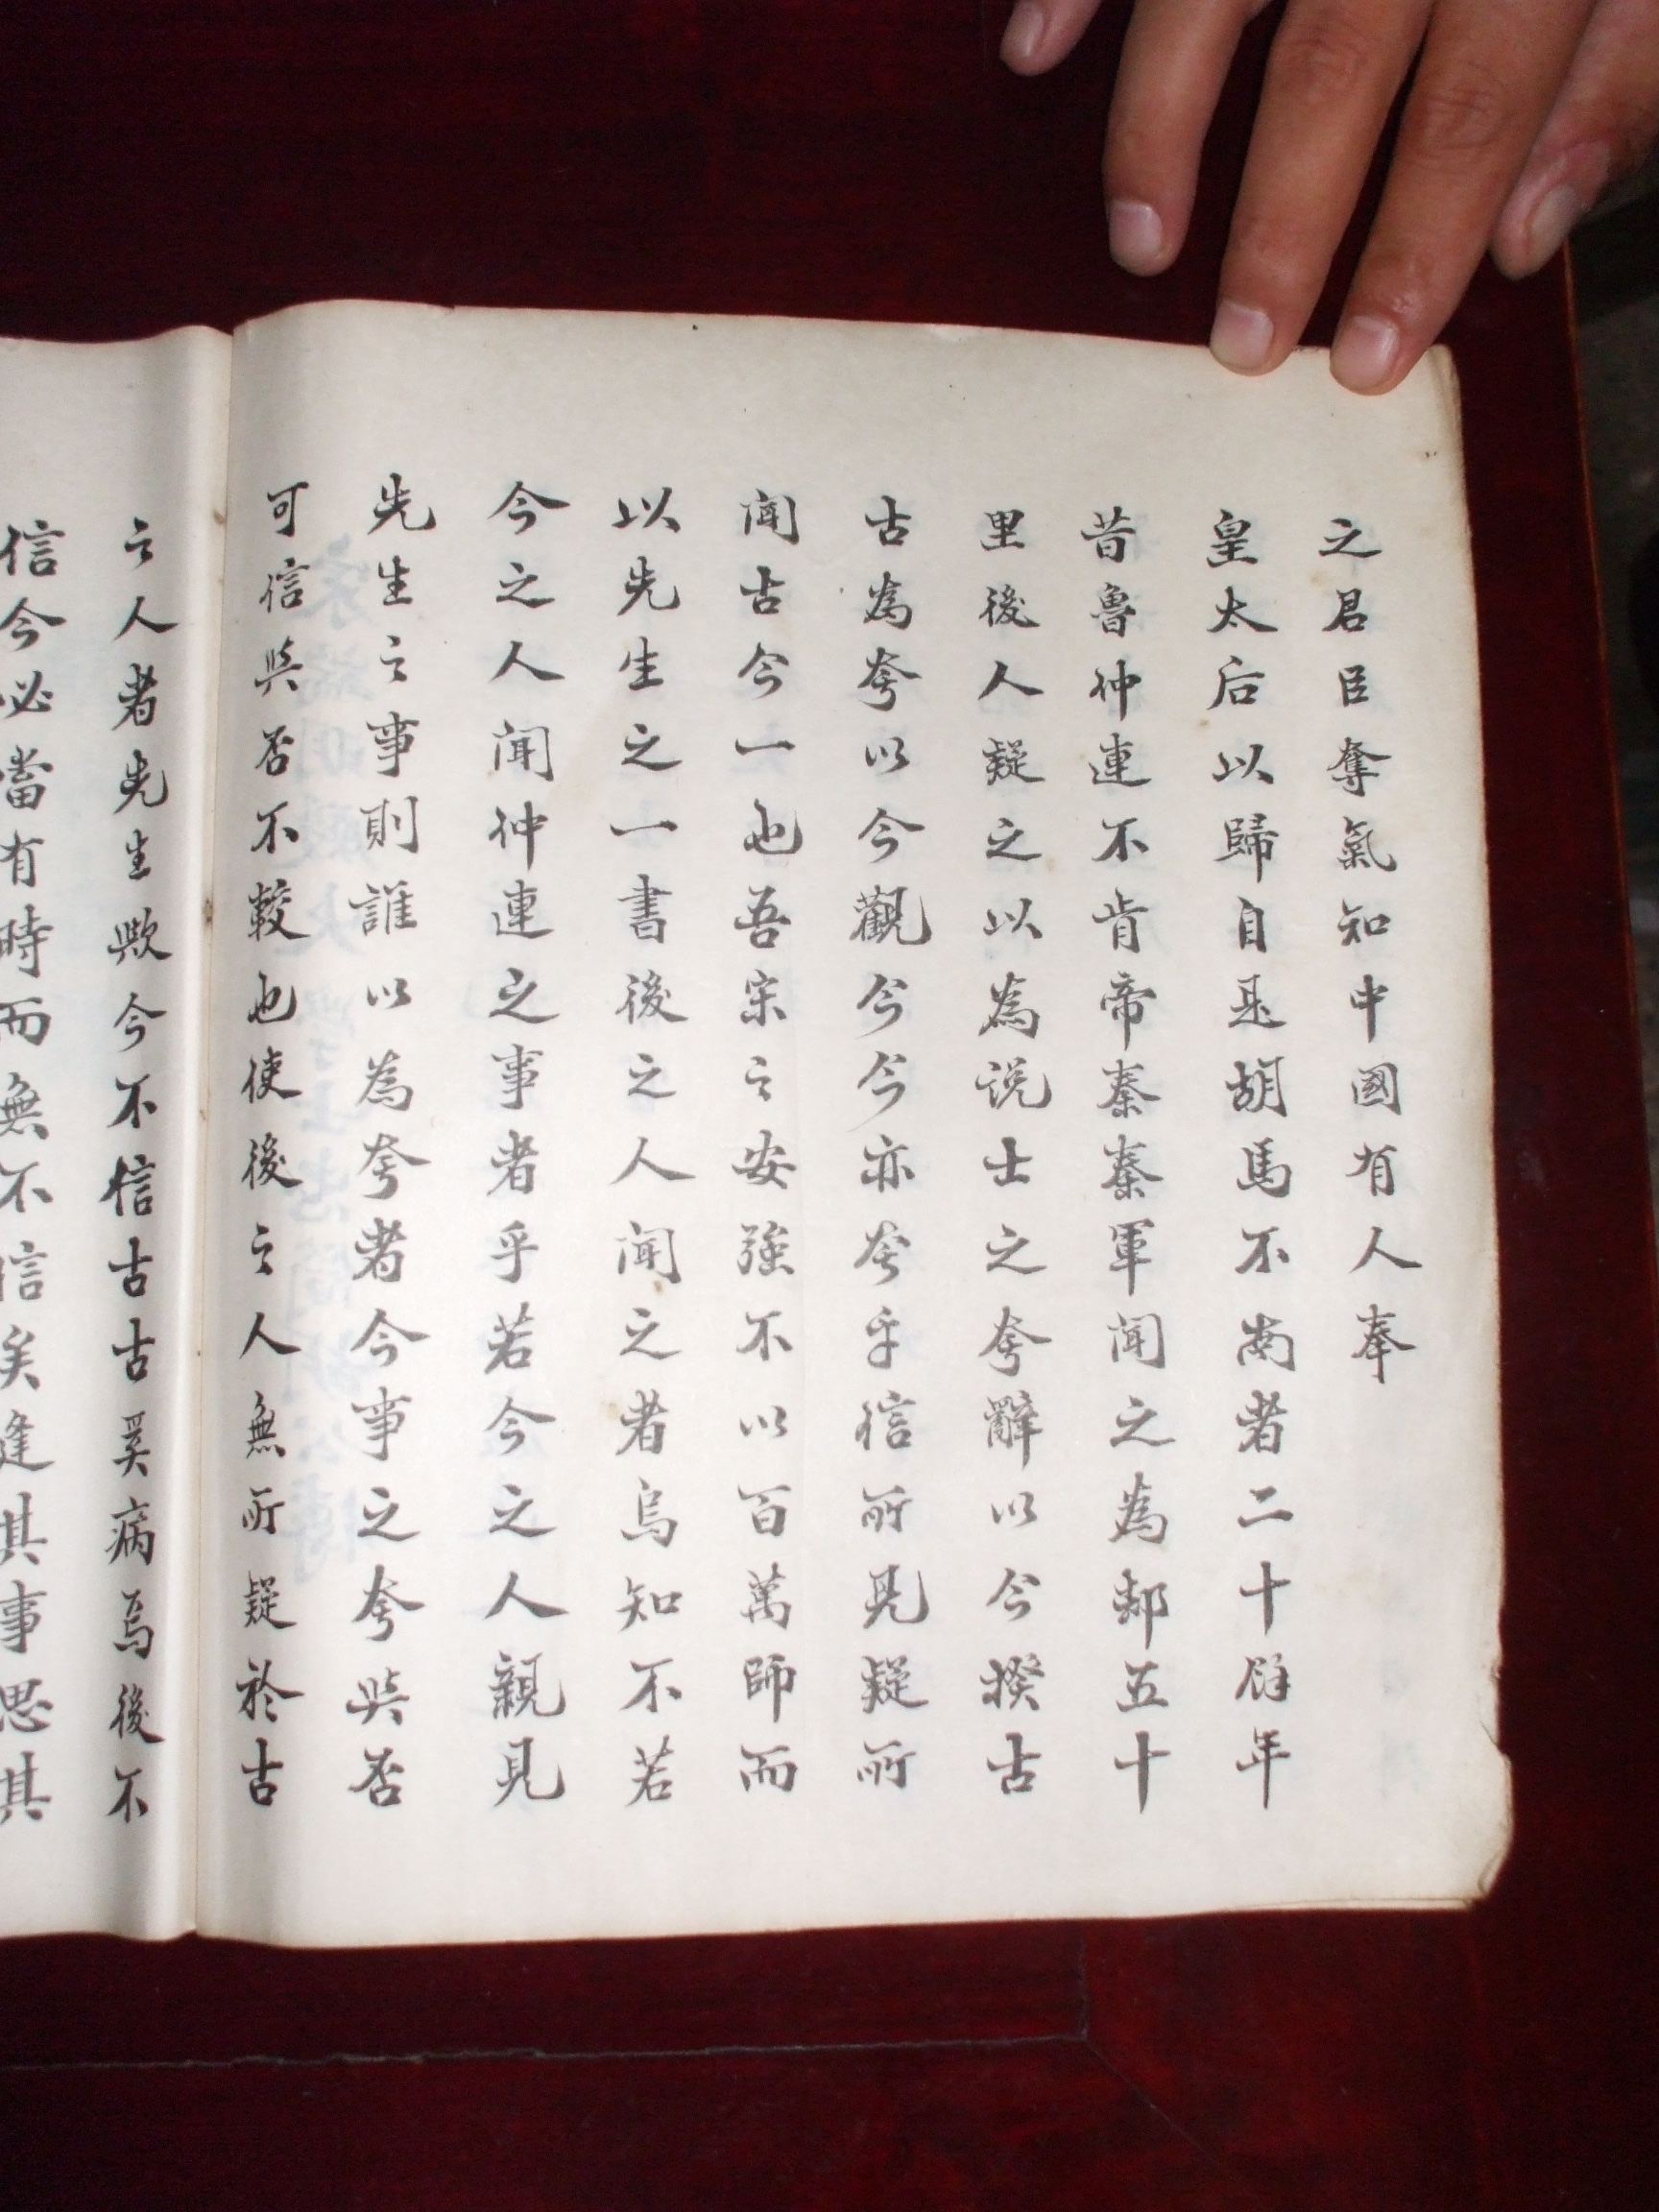 之君臣奪氣知中國有人奉
皇太后以歸自是胡馬不南者二十餘年
昔魯仲連不肯帝秦秦軍聞之為却五十
里後人疑之以為説士之夸辭以今揆古
古為夸以今觀今今亦夸乎信所見疑所
聞古今一也吾宋之安強不以百萬師而
以先生之一書後之人聞之者烏知不若
今之人聞仲連之事者乎若今之人親見
先生之事則誰以為夸者今事之夸與否
可信與否不較也使後之人無所疑於古
之人者先生歟今不信古古奚病焉後不
信今必當有時而無不信矣逢其事思其